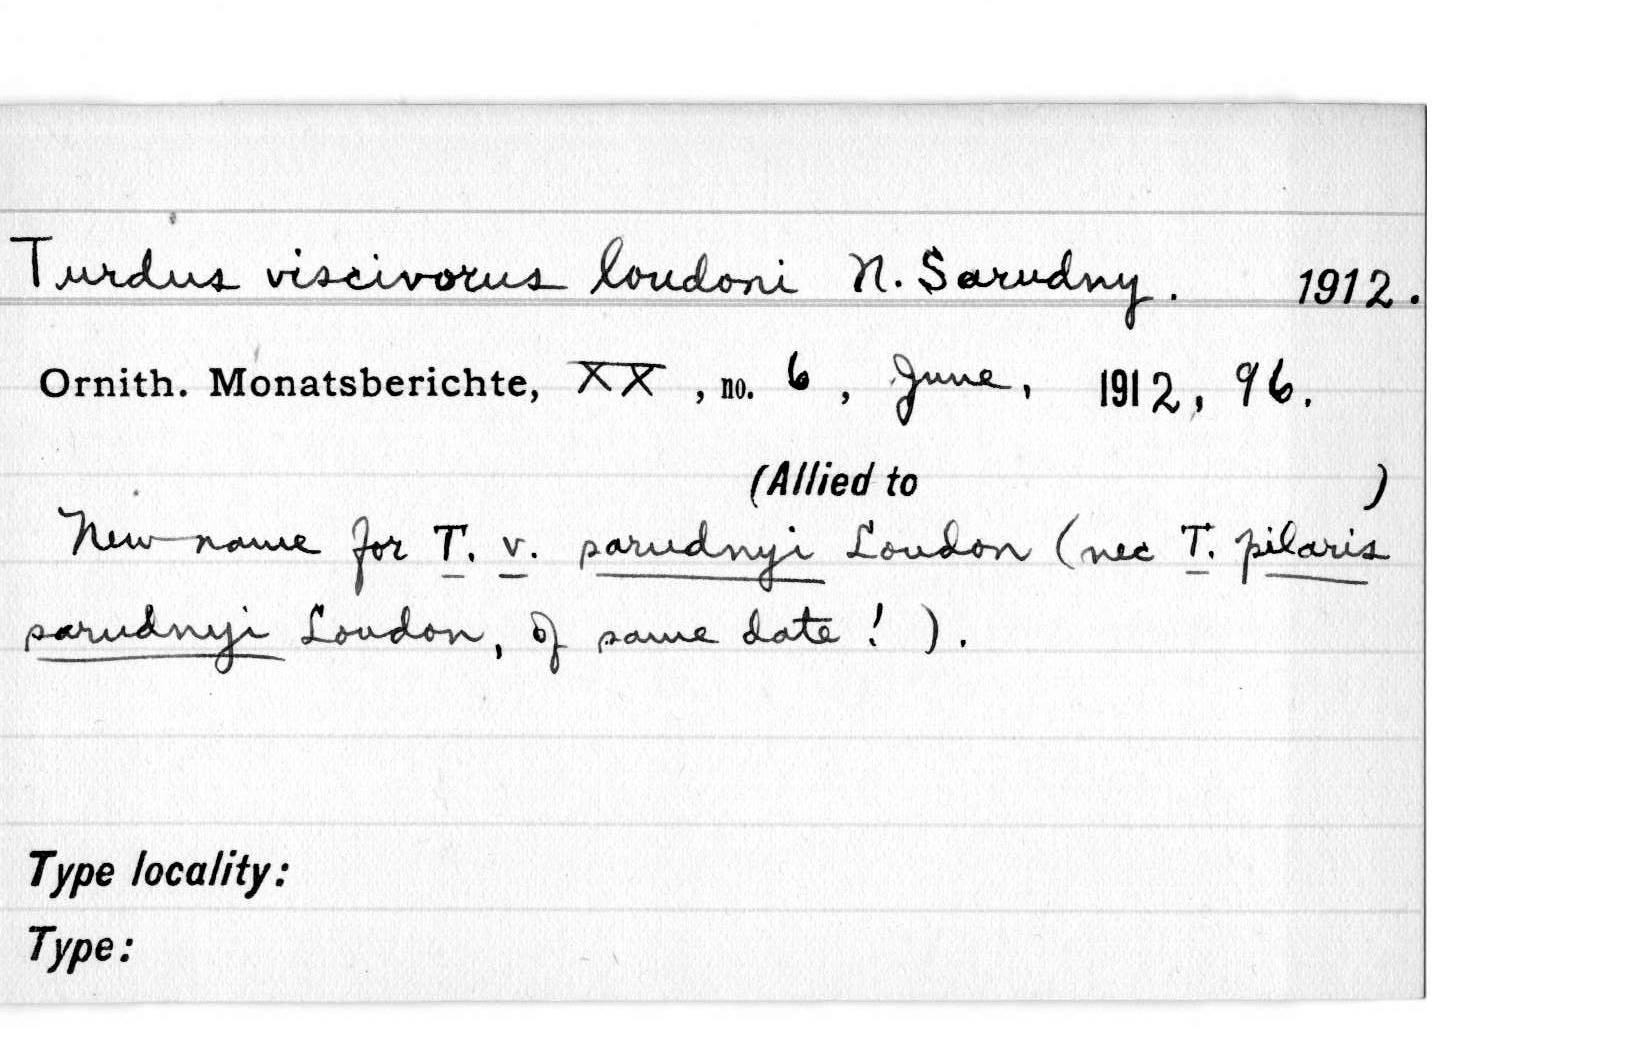 Turdus viscivorus loudoni N. Sarudny. 1912.
Ornith. Monatsberichte, XX, no. 6, June, 1912, 96.
(Allied to )
New name for T. v. sarudnyi Loudon (nec T. pilaris
sarudnyi Loudon, of same date! ).
Type locality:
Type: